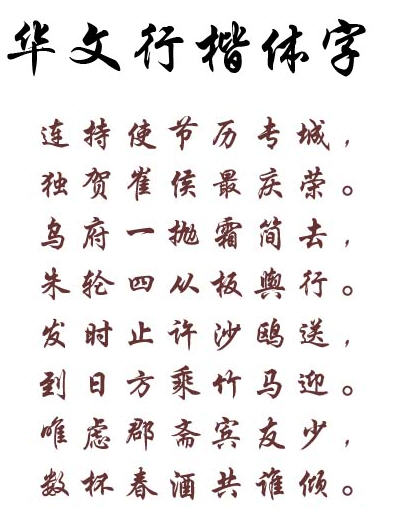 华文行楷体字
连持使节历专城，
独贺崔侯最庆荣。
乌府一抛霜简去，
朱轮四从板舆行。
发时止许沙鸥送，
到日方乘竹马迎。
唯虑郡斋宾友少，
数杯春酒共谁倾。